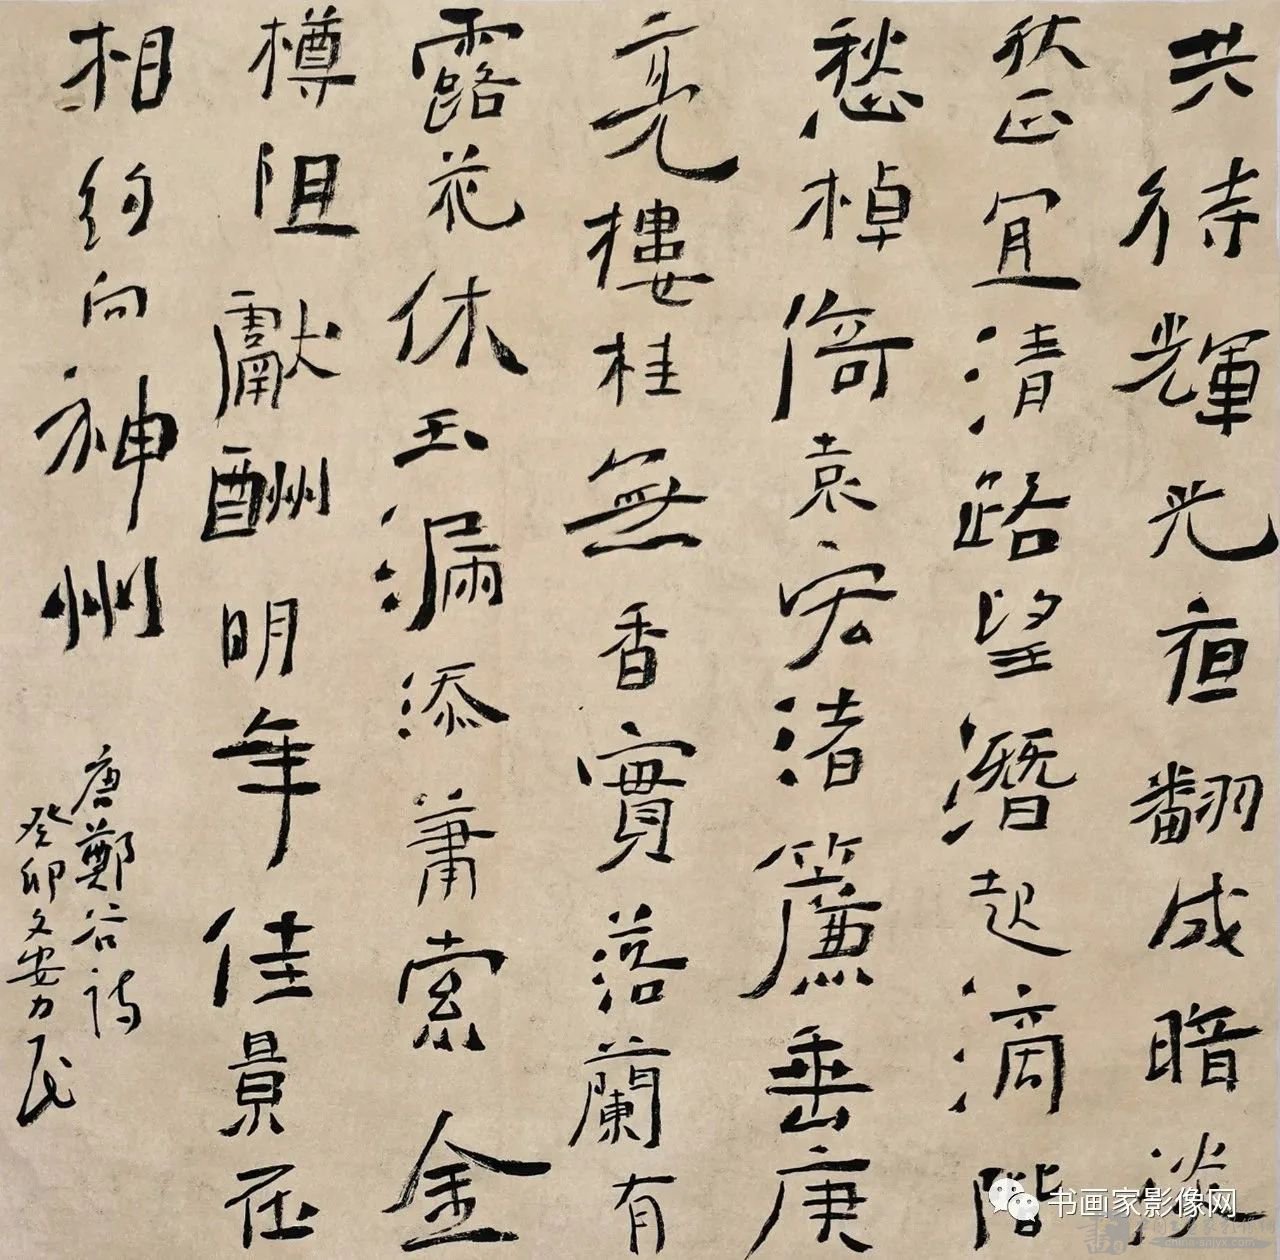 共待輝光夜翻成暗淡
秋正宜清路望潛起滴階
愁棹倚袁宏渚簾垂庚
亮樓桂無香實落蘭有
露花休玉漏添蕭索金
樽阻獻酬明年佳景在
相約向神州
唐鄭谷詩
癸卯文安力民
书画家影像网